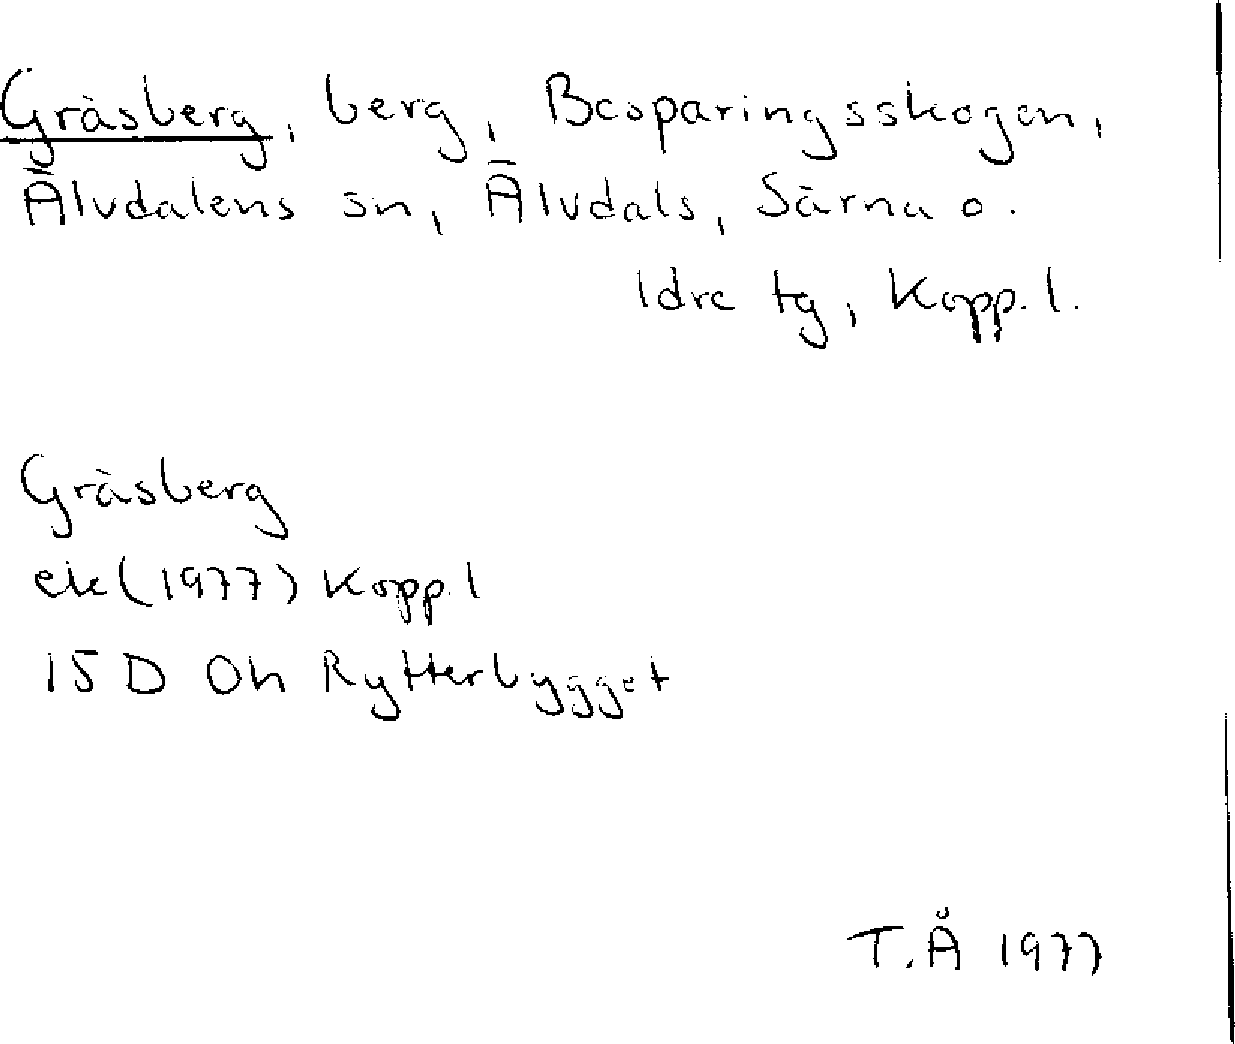 Gråsberg, berg, Besparingsskogen,
Älvdalens sn, Älvdals, Särna o.
Idre tg, Kopp. l.
Gråsberg
ek (1977) Kopp. l
15 D 0h Rytterbygget
T. Å 1977